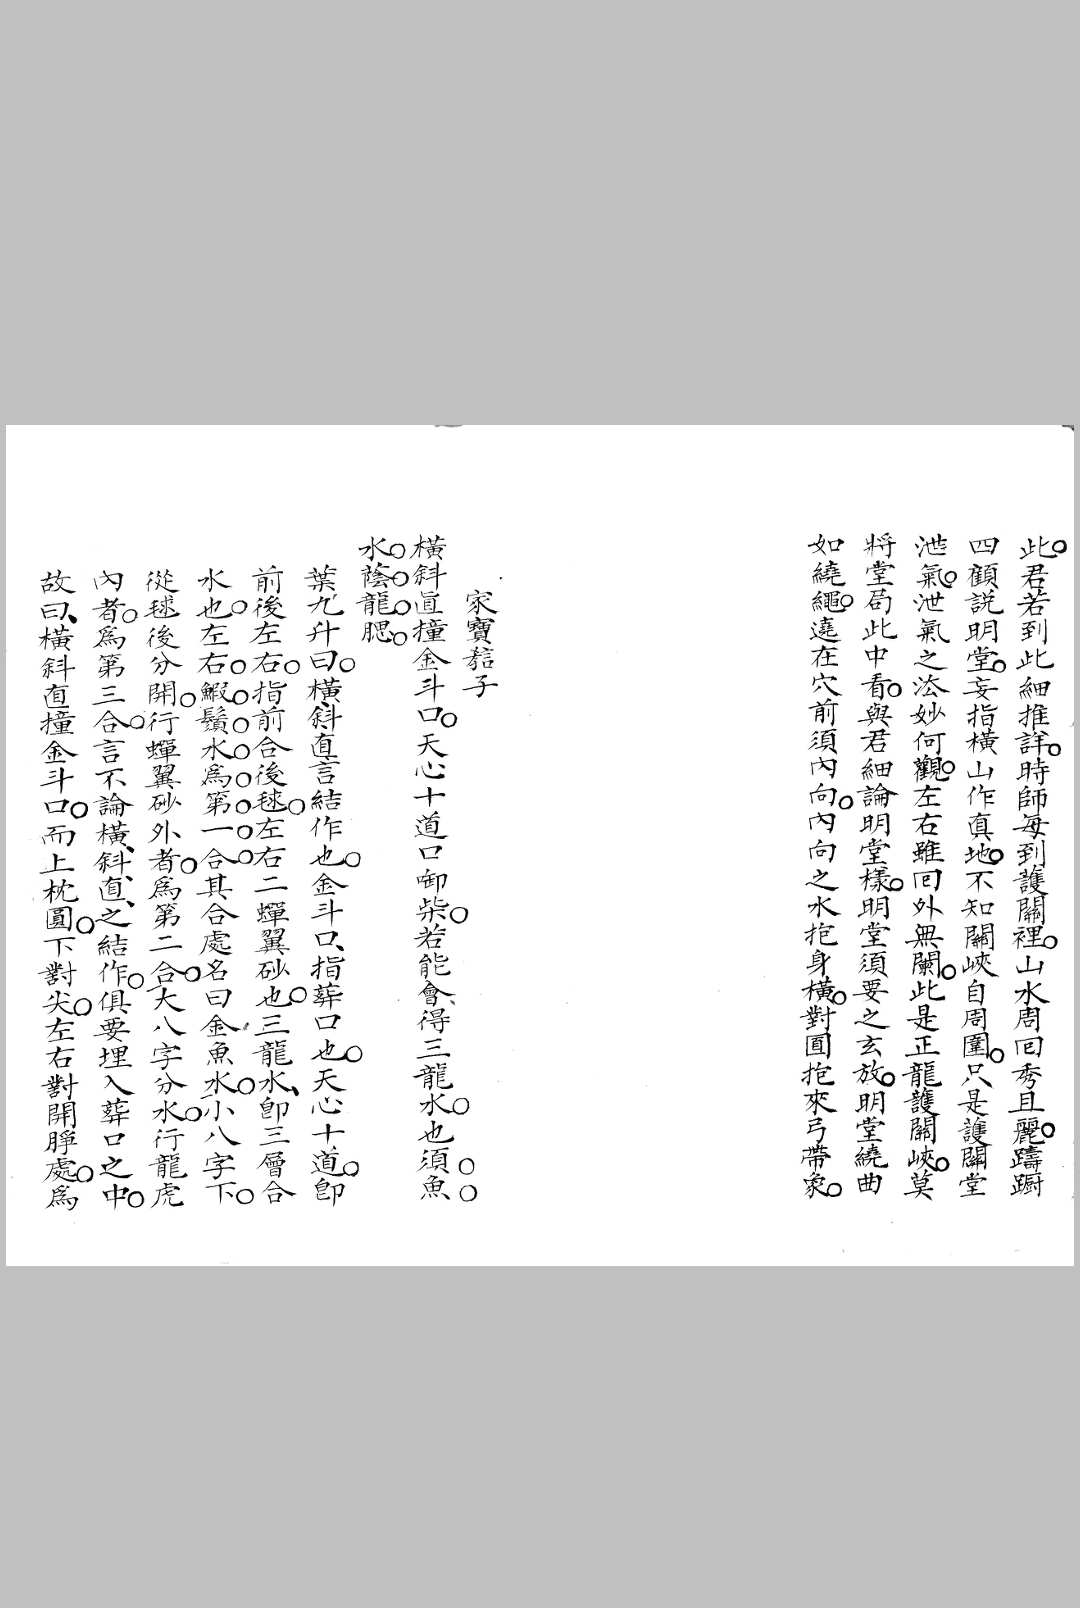 此君若到此細推詳時師每到護關裡山水周回秀且麗躊躕
四顧説明堂妄指橫山作真地不知關峽自周圍只是護關堂
泄氣泄氣之法妙何觀左右雖回外無闌此是正龍護關峽莫
將堂局此中看與君細論明堂樣明堂須要之玄放明堂繞曲
如繞繩遶在穴前須內向內向之水抱身橫對面抱來弓帶象
家寶嚭子
橫斜直撞金斗口天心十道口啣柴若能會得三龍水也須魚
水蔭龍腮
葉九升曰橫斜直言結作也金斗口指葬口也天心十道即
前後左右指前合後毬左右二蟬翼砂也三龍水即三層合
水也左右鰕鬚水爲第一合其合處名曰金魚水小八字下
從毬後分開行蟬翼砂外者爲第二合大八字分水行龍虎
內者爲第三合言不論橫斜直之結作俱要埋入葬口之中
故曰橫斜直撞金斗口而上枕圓下對尖左右對開脝處爲